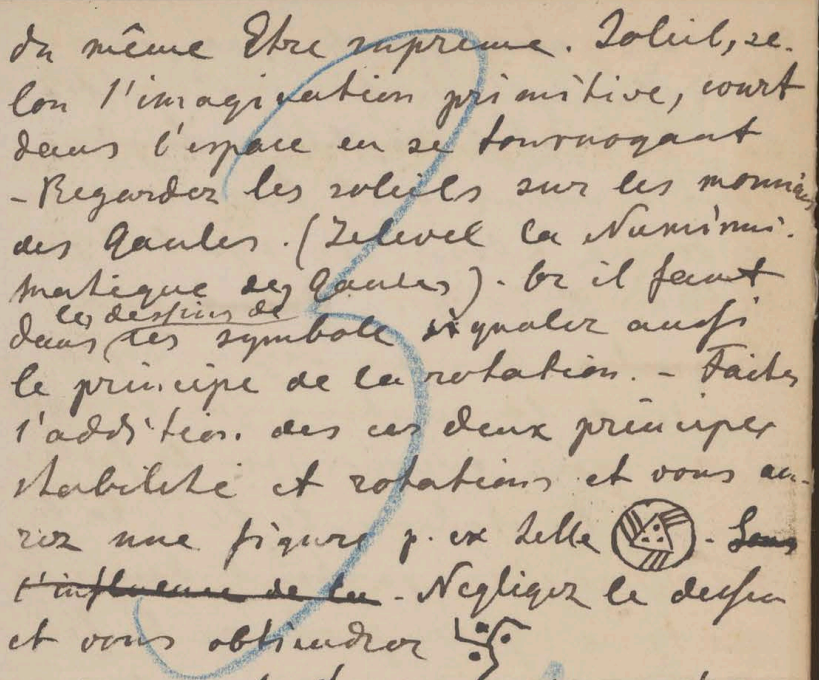 du même Etre supreme. Soleil, se-
lon l'imagination primitive, court
dans l'espace en se tournogant
- Regardez les soleils sur les monnaies
des Gaules. (Lelevel la Numismi-
matique des Gaules). Or il faut
les dessins de
dans les symbole signaler aussi
le principe de la rotation. - Faites
l'addition des ces deux principes
stabilité et rotations et vous au-
rez une figure p. ex telle - Sous
l'influence de la - Negligez le dessin
et vous obtiendrez